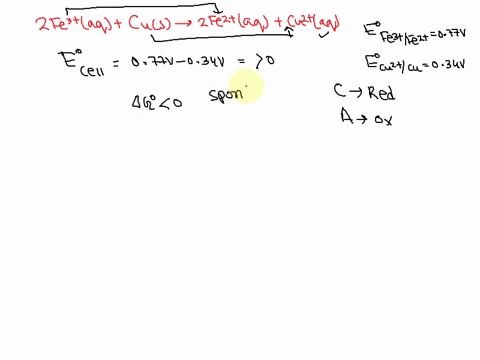 2Fe³⁺(aq) + Cu(s) → 2Fe²⁺(aq) + Cu²⁺(aq)
E°Fe³⁺/Fe²⁺ = 0.77V
E°cell = 0.77V - 0.34V = >0
E°Cu²⁺/Cu = 0.34V
C → Red
ΔG° <0 spon
A → ox